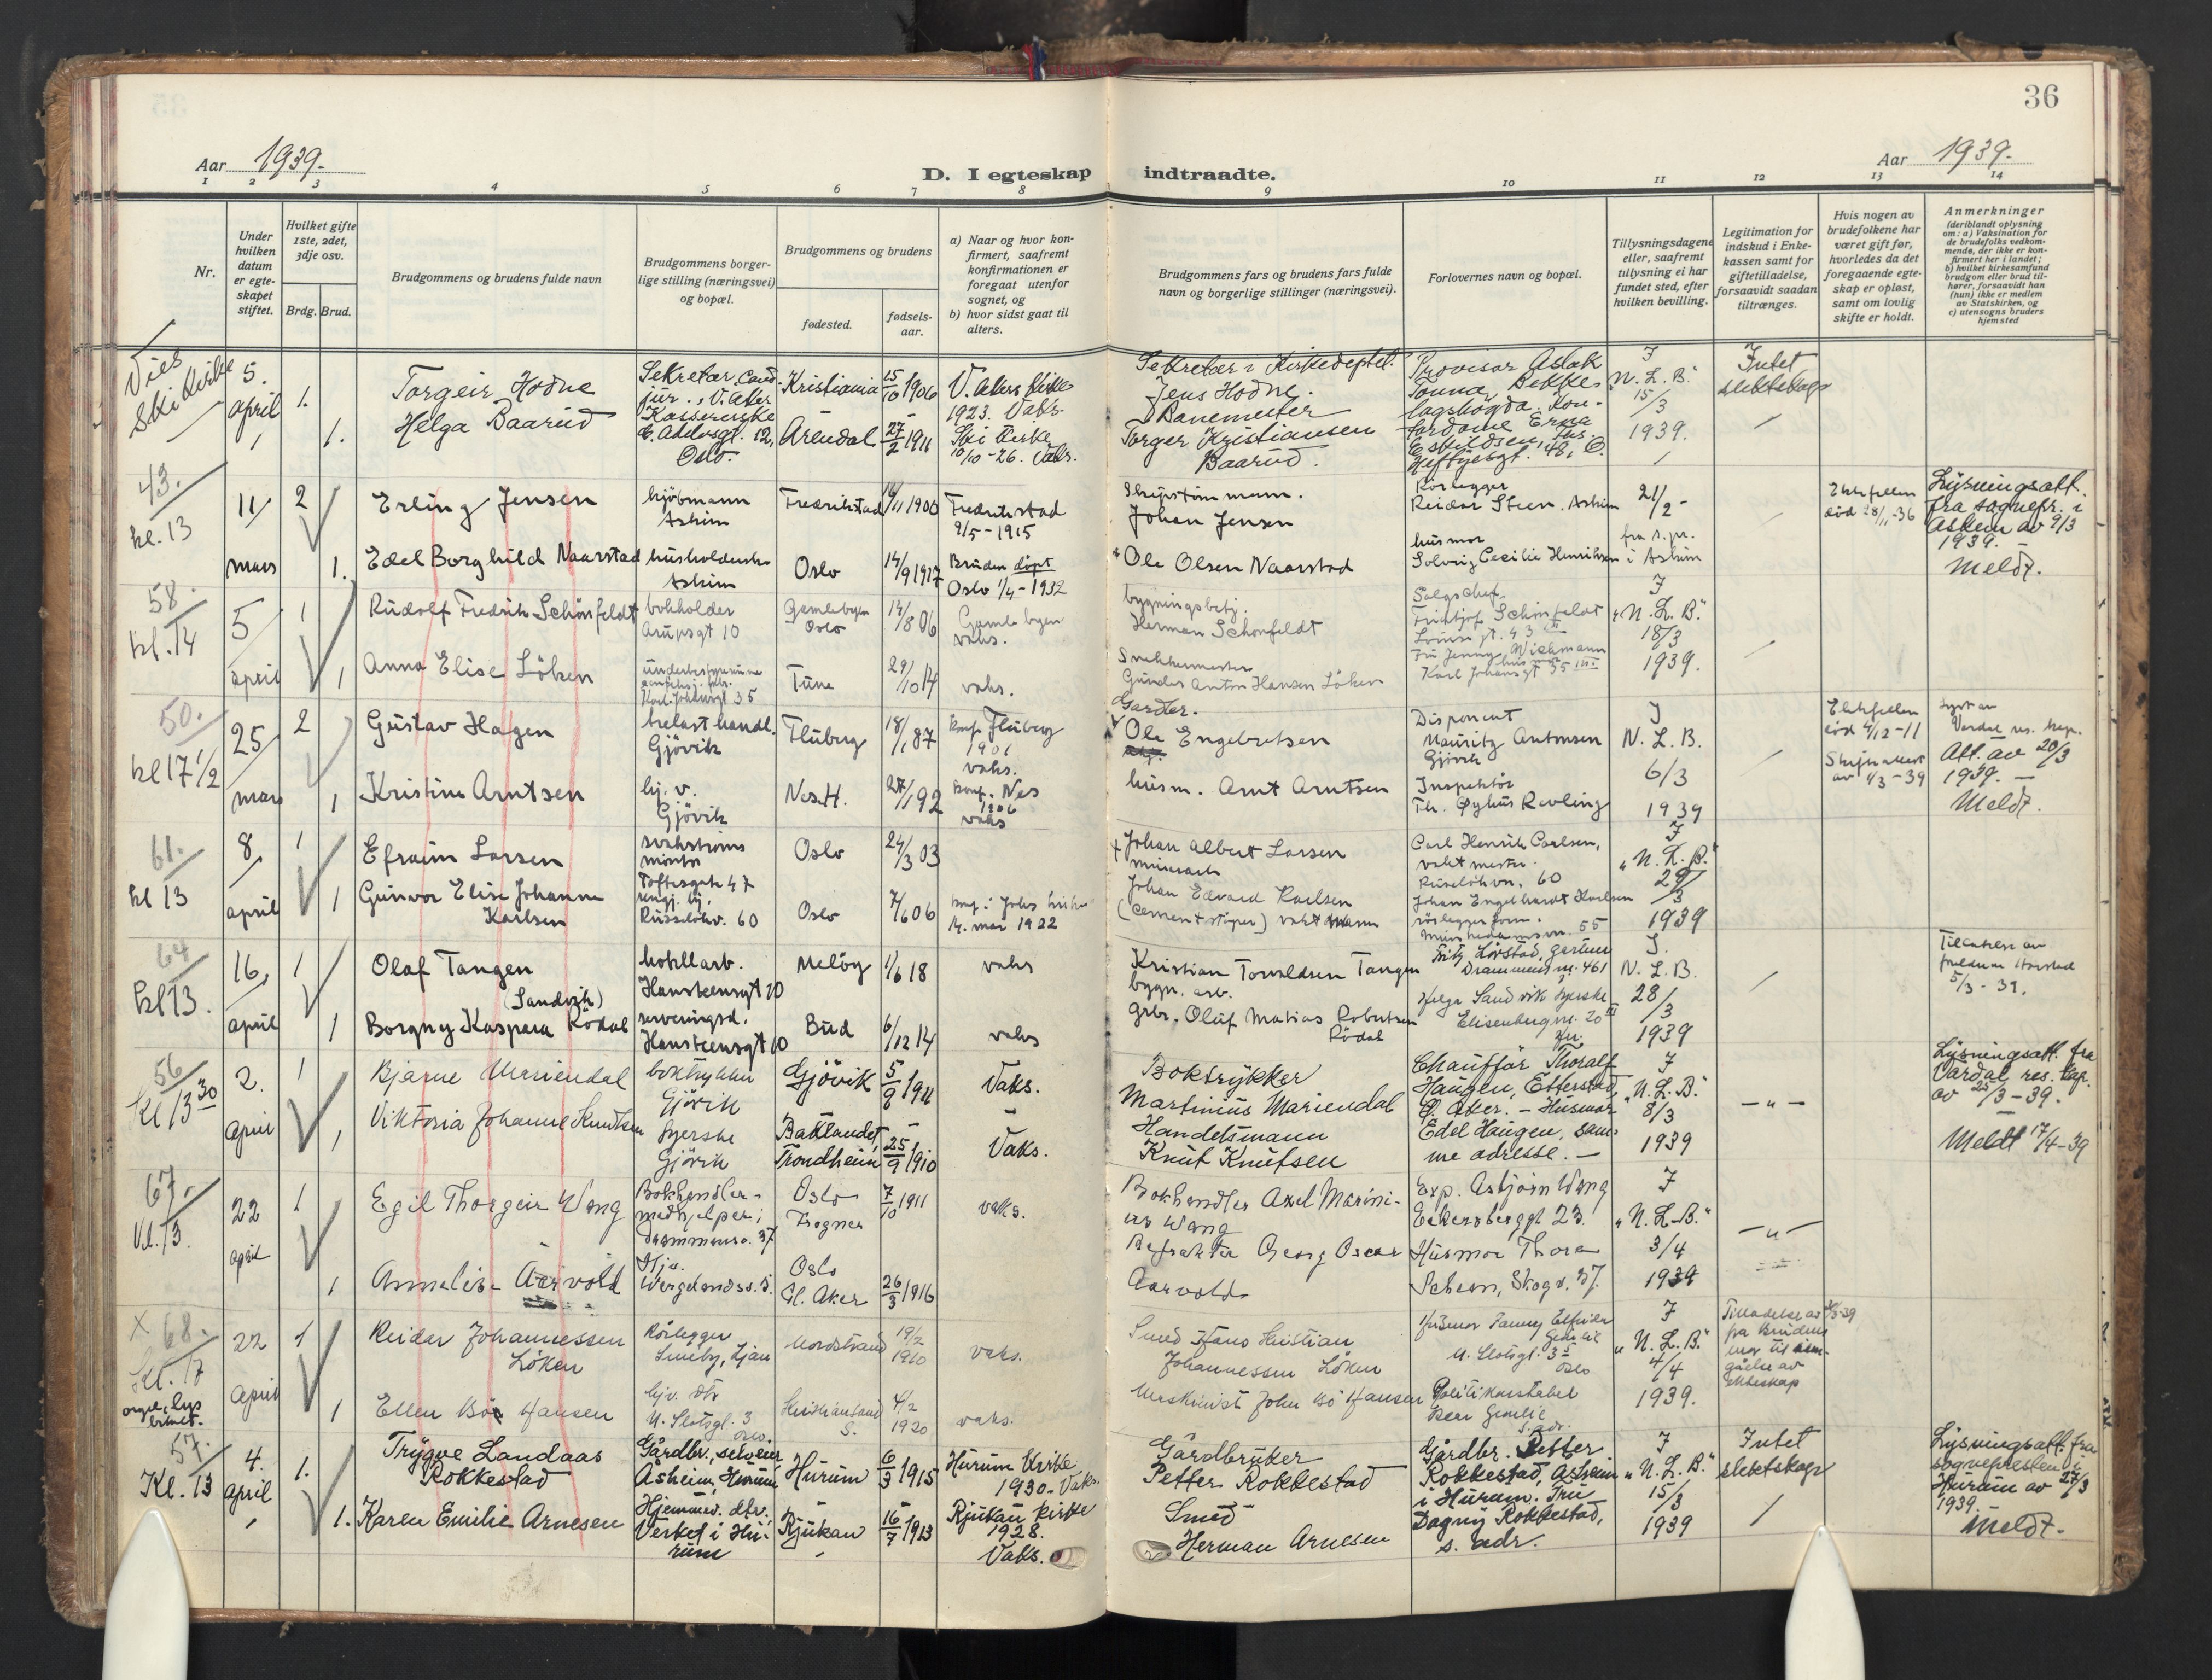 36
Aar 1939.
D. I egteskap indtraadte.
Aar 1939.
1 2 3 4 5 6 7 8 9 10 11 12 13 14
Nr.
Under hvilken datum er egteskapet stiftet.
Hvilket gifte 1ste, 2det, 3dje osv.
Brdg. Brud.
Brudgommens og brudens fulde navn
Brudgommens borgerlige stilling (næringsvei) og bopæl.
Brudgommens og brudens
fødested.
fødselsaar.
a) Naar og hvor konfirmert, saafremt konfirmationen er foregaat utenfor sognet, og
b) hvor sidst gaat til alters.
Brudgommens fars og brudens fars fulde navn og borgerlige stillinger (næringsvei).
Forlovernes navn og bopæl.
Tillysningsdagene eller, saafremt tillysning ei har fundet sted, efter hvilken bevilling.
Legitimation for indskud i Enkekassen samt for giftetilladelse, forsaavidt saadan tiltrænges.
Hvis nogen av brudefolkene har været gift før, hvorledes da det foregaaende egteskap er opløst, samt om lovlig skifte er holdt.
Anmerkninger (deriblandt oplysning om: a) Vaksination for de brudefolks vedkommende, der ikke er konfirmert her i landet; b) hvilket kirkesamfund brudgom eller brud tilhører, forsaavidt han (hun) ikke er medlem av Statskirken, og c) utensogns bruders hjemsted
Vies Ski Kirke
5. april
1.
Torgeir Hodne
Sekretær, Cand. jur., V. Aker
Kristiania
15/10 1906
V. Akers kirke 1923. Vaks.
Sekretær i Kirkedeptet. Jens Hodne.
Provisor Aslak Tonna, Bekkelagshøgda.
I "N. L. B." 15/3 1939.
Intet slektskap
1.
Helga Baarud
Kassererske C. Aldersgt. 12, Oslo.
Arendal
27/2 1911
Ski Kirke 10/10-26. Vaks.
Banemester Torger Kristiansen Baarud.
Erna Eskildsen, Ths. Heftyesgt. 48, O.
43. kl. 13
11/ mars
2
Erling Jensen
kjöbmann Askim
Fredrikstad
16/11 1900
Fredrikstad 9/5-1915
Skipstömmerm. Johan Jensen
Rörlegger Reidar Steen. Askim
21/2 - fra s.pr. i Askim
Ektefellen död 28/11-36
Lysningsatt. fra sognepr. i Askim av 9/3 1939. - Meldt.
1.
Edel Borghild Naarstad
husholderske Askim
Oslo
14/9 1917
Bruden döpt Oslo 1/4-1932
Ole Olsen Naarstad
husmor Solveig Cecilie Henriksen
58. kl. 14
5/ april
1
Rudolf Fredrik Schönfeldt
bokholder Arupsgt 10
Gamlebyen Oslo
14/8 06
Gamlebyen vaks.
bygningsbetj. Herman Schönfeldt
Salgschef Fridtjof Schönfeldt Louises gt. 43 III
I "N. L. B." 18/3 1939.
1
Anna Elise Löken
Karl Johansgt 35
Tune
29/10 14
vaks.
Snekkermester Gunder Anton Hansen Löken
Fru Jenny Wickmann husmor Karl Johansgt 35 III
50. kl 17 1/2
25/ mars
2
Gustav Hagen
trelasthandl. Gjövik
Fluberg
18/1 87
konf. Fluberg 1901 vaks.
Garder. Ole Engebretsen
Disponent Mauritz Antonsen Gjövik
I N. L. B. 6/3 1939
Ektefellen död 4/12-11 Skifteattest av 4/3-39
lyst av Vardal res. kap. Att. av 20/3 1939. - Meldt.
1
Kristine Arntsen
hj. v. Gjövik
Nes. H.
27/1 92
konf. Nes 1906 vaks
husm. Arnt Arntsen
Inspektör Th. Øyhus Rovling
61. kl 13
8/ april
1
Efraim Larsen
svakstrøms montör Toftesgate 47
Oslo
24/3 03
Johan Albert Larsen murerarb.
Carl Henrik Carlsen, vaktmester. Ruselökvn. 60
I "N. L. B." 29/3 1939
1
Gunvor Elise Johanne Karlsen
rengj. hj. Russelökv. 60
Oslo
7/6 06
konf. i Johs kirke 14. mar 1922
Johan Edvard Karlsen (cementstöper) vaktmann
Johan Engelhardt Karlsen rörlegger form. 55
64 kl 13.
16, april
1
Olaf Tangen
hotellarb. Hansteensgt 10
Melöy
1/6 18
vaks
Kristian Torvaldsen Tangen bygn. arb.
Fritz Lövstad, gartner Drammensvn. 461
I. N. L. B. 28/3 1939
5/3-39.
1
(Sandvik) Borgny Kaspara Rödal
serveringsd. Hansteensgt 10
Bud
6/12 14
vaks
grbr. Oluf Matias Robertsen Rödal
Helga Sandvik syerske Elisenbergvn. 20 III
56 kl 13 30
2. april
1
Bjarne Mariendal
boktrykker Gjövik
Gjövik
5/8 1911
Vaks.
Boktrykker Martinus Mariendal
Chauffør Thoralf Haugen, Etterstad, Ö. Aker. - Husmor
I "N. L. B." 8/3 1939
- " -
Lysningsatt. fra Vardal res. kap. av 25/3-39. - Meldt 17/4-39
1
Viktoria Johanne Knutsen
syerske Gjövik
Baklandet, Trondheim
25/9 1910
Vaks.
Handelsmann Knut Knutsen
Edel Haugen, samme adresse. -
67. kl. 13.
22 april
1
Egil Thorgeir Wang
Bokhandlermedhjelper; Drammensv. 37
Oslo Frogner
7/10 1911
vaks.
Bokhandler Axel Marinius Wang
Exp. Asbjörn Wang Eckersbergsgt 23.
I "N. L. B." 3/4 1939
- " -
1
Annelise Aarvold
Hjv. Wergelandsv. 5.
Oslo Gl. Aker
26/3 1916
Befrakter Georg Oscar Aarvold
Husmor Thora Scheen, Skogv. 37.
X 68. kl. 17 orgel, lys
22 april
1
Reidar Johannessen Löken
Rörlegger Ljan
Nordstrand
19/2 1910
vaks.
Smed Hans Kristian Johannessen Löken
Husmor Fanny Elfrida Gemlie U. Slotsgt. 35 Oslo
I "N. L. B." 4/4 1939.
Tilladelse av fra brudens mor til inngåelse av ekteskap
1
Ellen Bö Hansen
hjv. dtr U. Slotsgt. 3 Oslo.
Kristiansand S.
4/2 1920
vaks.
Maskinist John Bö Hansen
Politikonstabel Gemlie s. adr.
57. Kl. 13
4. april
1.
Trygve Landaas Rokkestad
Gårdbr., selveier Åsheim, Hurum
Hurum
6/3 1915
Hurum Kirke 1930. Vaks.
Gårdbruker Petter Rokkestad
Gårdbr. Petter Rokkestad, Åsheim i Hurum. Fru
I "N. L. B." 15/3 1939
Intet slektskap
Lysningsatt. fra sognepresten i Hurum av 27/3 1939. - Meldt.
1.
Karen Emilie Arnesen
Hjemmev. dtr., Verket i Hurum
Rjukan
16/7 1913
Rjukan kirke 1928. Vaks.
Smed Herman Arnesen
Dagny Rokkestad, s. adr.